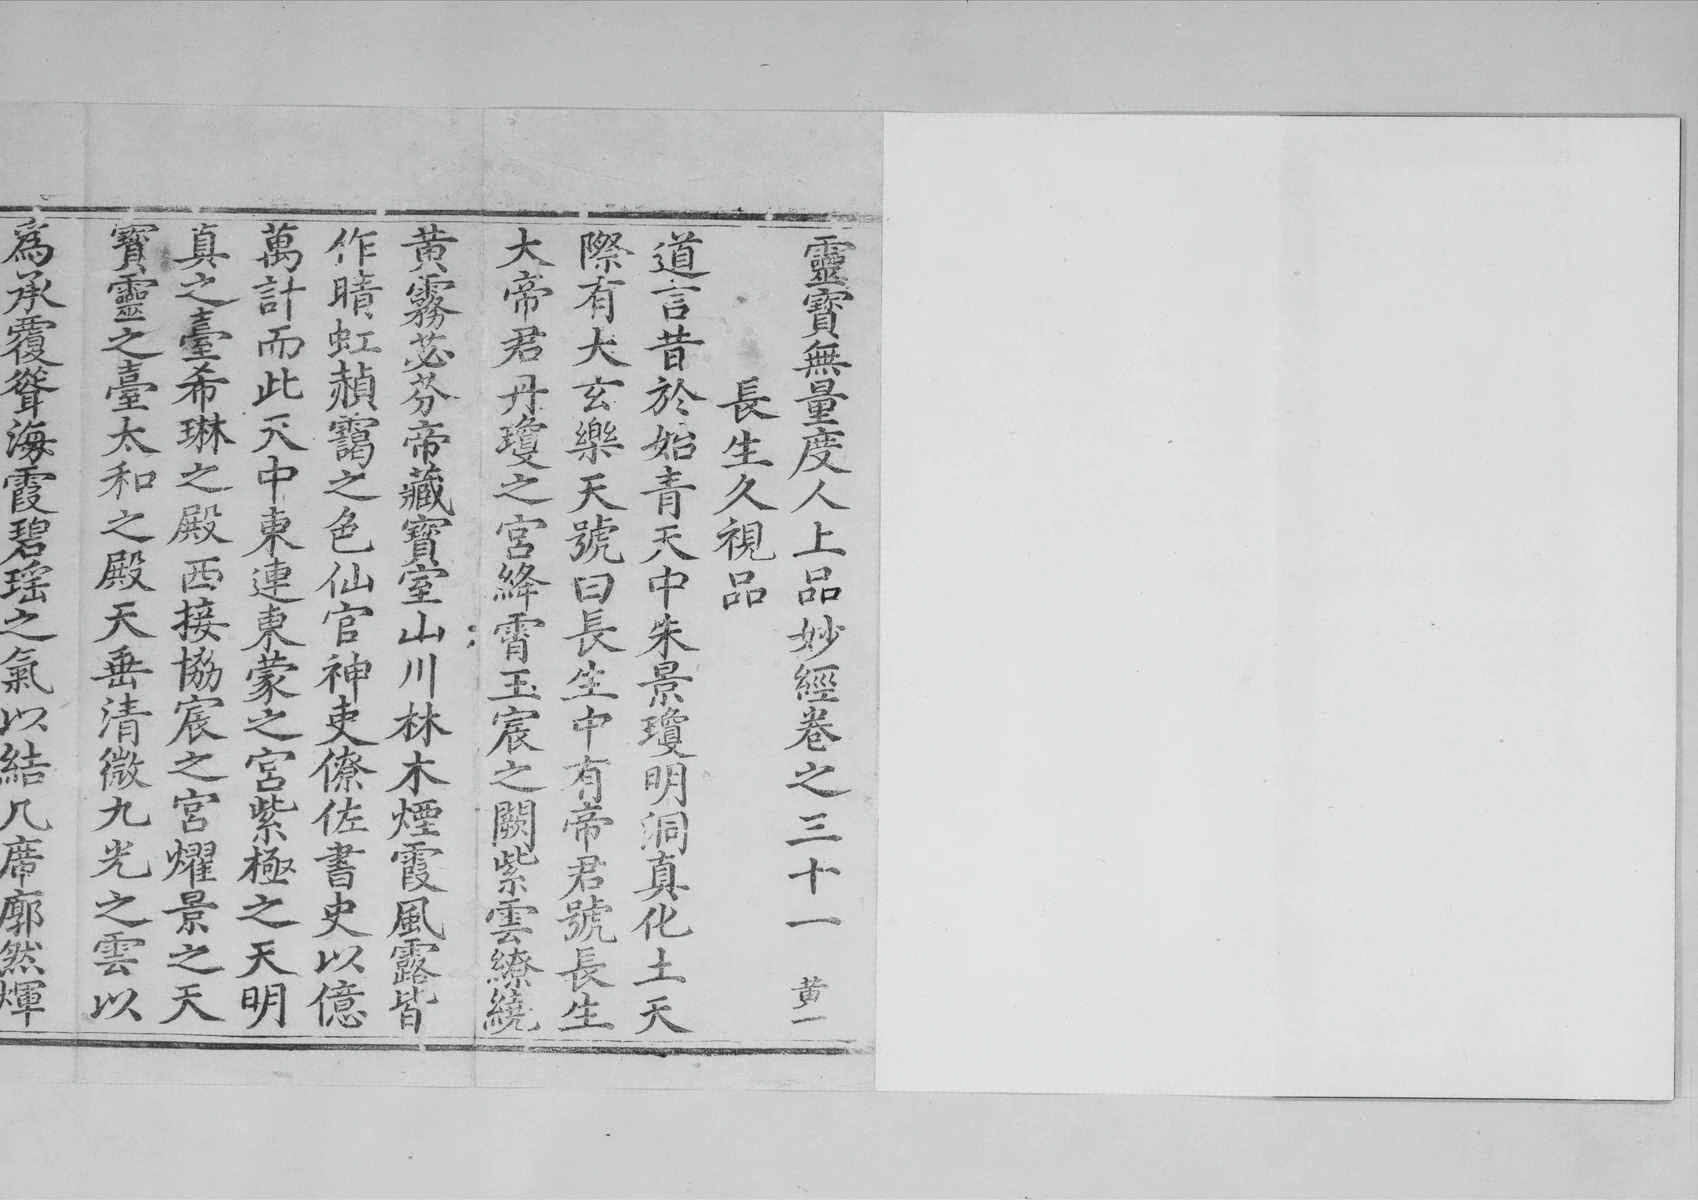 靈寶無量度人上品妙經卷之三十一 黃一
長生久視品
道言昔於始青天中朱景瓊明洞真化土天
際有大玄樂天號曰長生中有帝君號長生
大帝君丹瓊之宮絳霄玉宸之闕紫雲繚繞
黃霧苾芬帝藏寶室山川林木煙霞風露皆
作晴虹赬靄之色仙官神吏僚佐書史以億
萬計而此天中東連東蒙之宮紫極之天明
真之臺希琳之殿西接協宸之宮耀景之天
寶靈之臺太和之殿天垂清微九光之雲以
為承覆聳海霞碧瑤之氣以結几席廓然煇